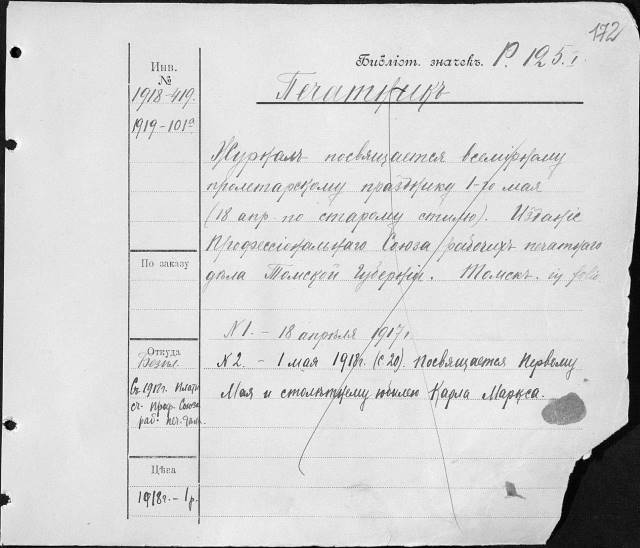 172
Библіот. значекъ. Р. 125.I.
Инв.
№
1918-419.
1919-101а
Печатникъ
Журналъ посвящается всемірному
пролетарскому празднику 1-го мая
(18 апр. по старому стилю). Изданіе
Профессіональнаго Союза рабочихъ печатнаго
дѣла Томской Губерніи. Томскъ. in folio
По заказу
N 1. - 18 апрѣля 1917 г.
N 2. - 1 мая 1918 г. (с 20). Посвящается Первому
Мая и столѣтнему юбилею Карла Маркса.
Откуда
Безпл.
Съ 1918 г.
проф. Союза
раб. печ. дѣла.
Цѣна
1918 г. - 1 р.